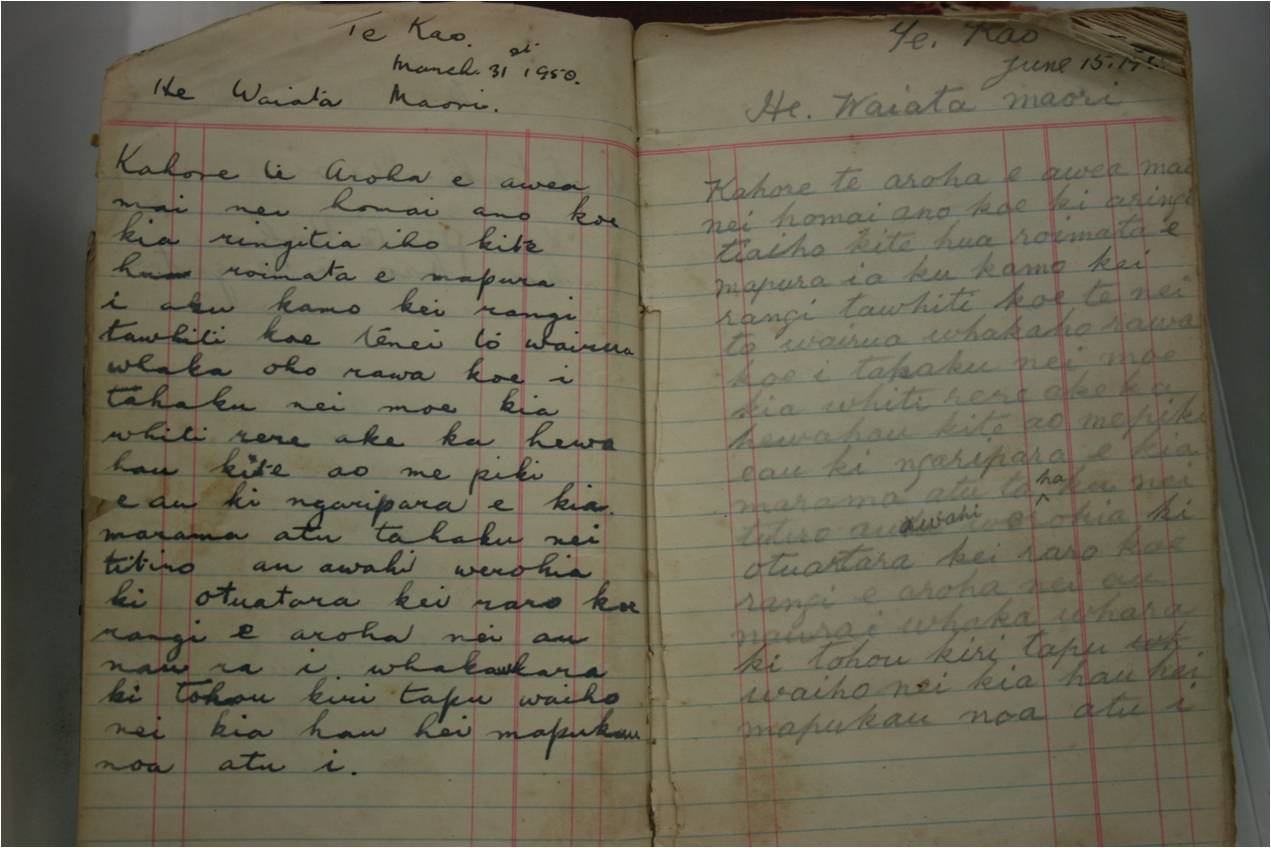 Te Kao.
March. 31st 1950.
He Waiata Maori.
Kahore te Aroha e awea
mai nei homai ano koe
kia ringitia iho kite
hua roimata e mapura
i aku kamo kei rangi
tawhiti koe tēnei tó wairua
whaka oho rawa koe i
tahaku nei moe kia
whiti rere ake ka hewa
hau kite ao me piki
e au ki ngaripara e kia.
marama atu tahaku nei
titiro au awahi werohia
ki otuatara kei raro koe
rangi e aroha nei au
nau ra i whakawhara
ki tohou kiri tapu waiho
nei kia hau hei mapukau
noa atu i.
Te. Kao
June 15.
He. Waiata maori
Kahore te aroha e awea mai
nei homai ano koe ki aringi
tiaiho kite hua roimata e
mapura ia ku kamo kei
rangi tawhiti koe te nei
to wairua whakaho rawa
koe i tahaku nei moe
kia whiti rere ake ka
hewahau kite ao me piki
eau ki ngaripara e kia
marama atu ta ha ku nei
titiro au awahi werohia ki
otuatara kei raro koe
rangi e aroha nei au
naura i whaka whara
ki tohou kiri tapu
waiho nei kia hau hei
mapukau noa atu i